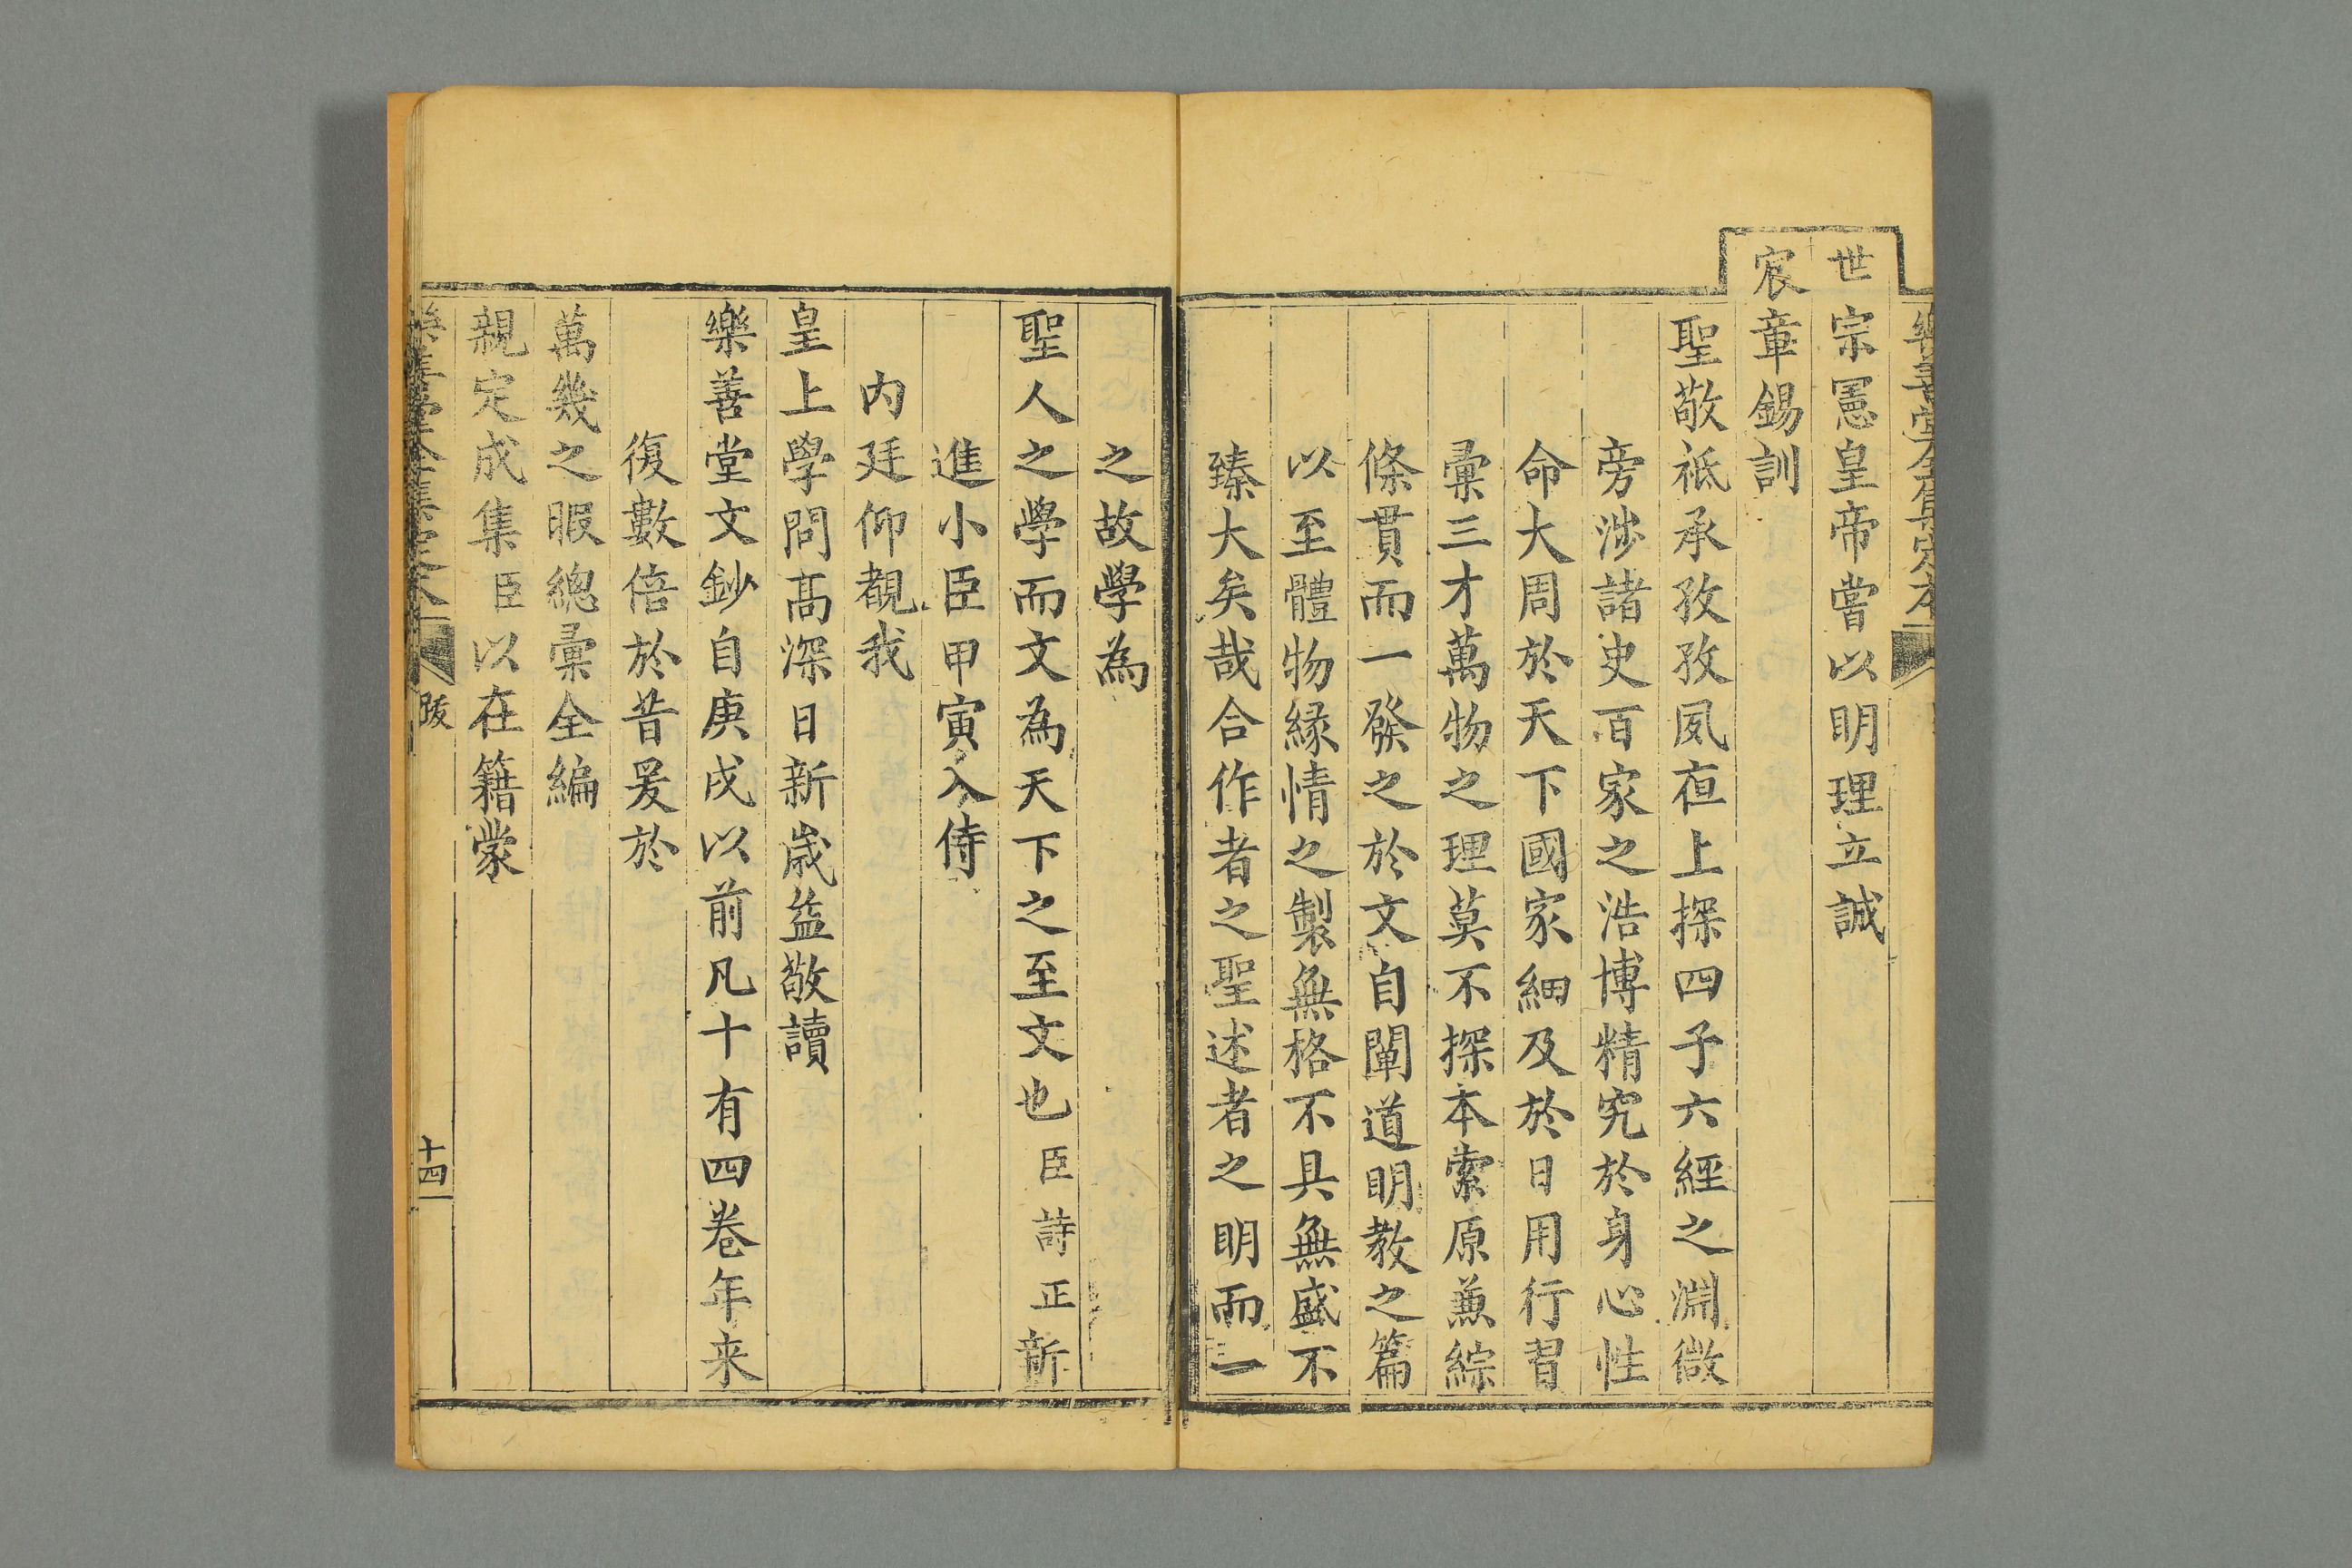 樂善堂全集定本
世宗憲皇帝嘗以明理立誠
宸章錫訓
聖敬祗承孜孜夙夜上探四子六經之淵微
旁涉諸史百家之浩博精究於身心性
命大周於天下國家細及於日用行習
彚三才萬物之理莫不探本索原兼綜
條貫而一發之於文自闡道明教之篇
以至體物緣情之製無格不具無盛不
臻大矣哉合作者之聖述者之明而一
之故學為
聖人之學而文為天下之至文也臣詩正新
進小臣甲寅入侍
内廷仰覩我
皇上學問高深日新歲益敬讀
樂善堂文鈔自庚戌以前凡十有四卷年来
復數倍於昔爰於
萬幾之暇總彚全編
親定成集臣以在籍蒙
樂善堂全集定本
跋
十四